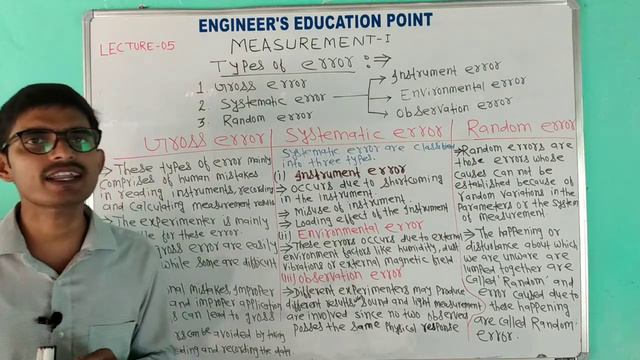 ENGINEER'S EDUCATION POINT
LECTURE-05
MEASUREMENT-I
Types of error :⇒
1. Gross error
2. Systematic error
3. Random error
Instrument error
Environmental error
Observation error
Gross error
→ These types of error mainly
comprises of human mistakes
in reading instruments, recording
and calculating measurement results
→ The experimenter is mainly
for these error.
gross error are easily
while some are difficult
mistakes, improper
and improper application
can lead to gross
can be avoided by taking
and recording the data
Systematic error
Systematic error are classified
into three types.
(i) Instrument error
→ occurs due to shortcoming
in the instrument
→ Misuse of instrument
→ Loading effect of the Instrument
(ii) Environmental error
→ These errors occurs due to external
environment factors like humidity, dust
vibrations or external magnetic field
(iii) Observation error
→ Different experimenters may produce
different results sound and light measurement
are involved since no two observed
posses the same physical response
Random error
→ Random errors are
those errors whose
causes can not be
established because of
random variations in the
parameters or the system
of measurement.
→ The happening or
disturbance about which
we are unware are
lumped together are
called 'Random' and
error caused due to
these happening
are called Random
error.